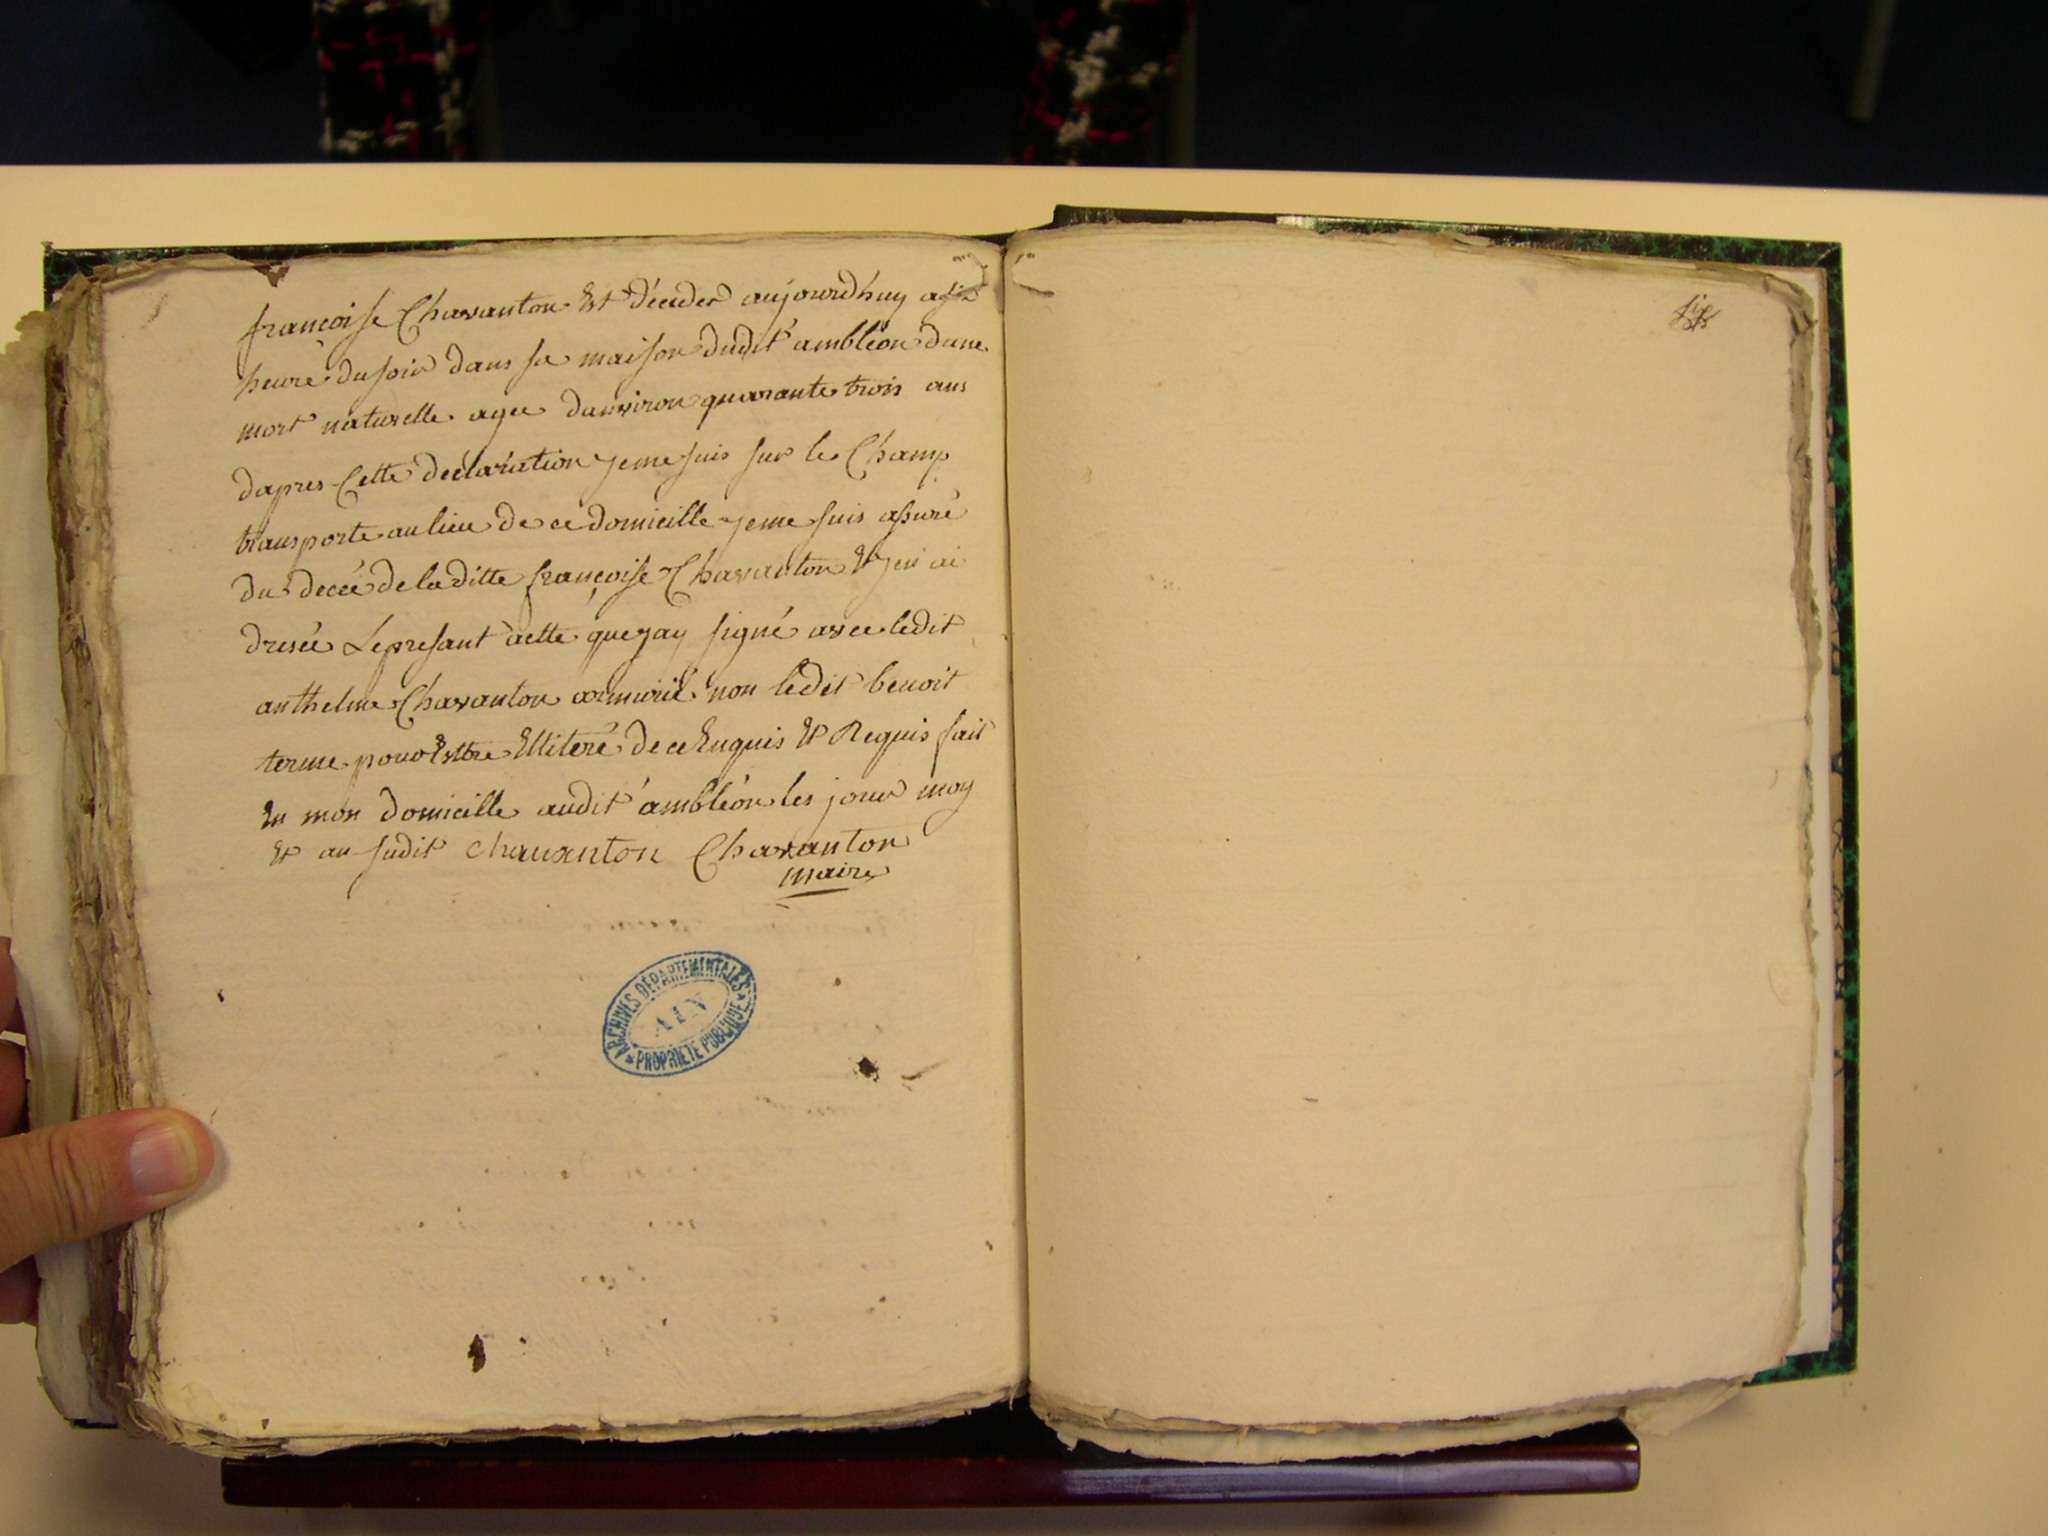 françoise Chavanton Est décedes aujourdhuy a six
heure du soir dans sa maison dudit ambléon dune
mort naturelle agee danviron quarante trois ans
dapres Cette déclaration jeme suis sur le Champ
transporte au lieu de ce domicille jeme suis assuré
du decée de la ditte françoise Chavanton Et jen ai
dresée Le presant actte que jay signé avec ledit
anthelme Chavanton armurié non ledit benoit
terme pour Estre Illiteré de ce Enquis Et Requis fait
En mon domicille audit ambléon les jour moy
Et an sudit chavanton Chavanton
maire
ARCHIVES DÉPARTEMENTALES
AIN
PROPRIÉTÉ PUBLIQUE